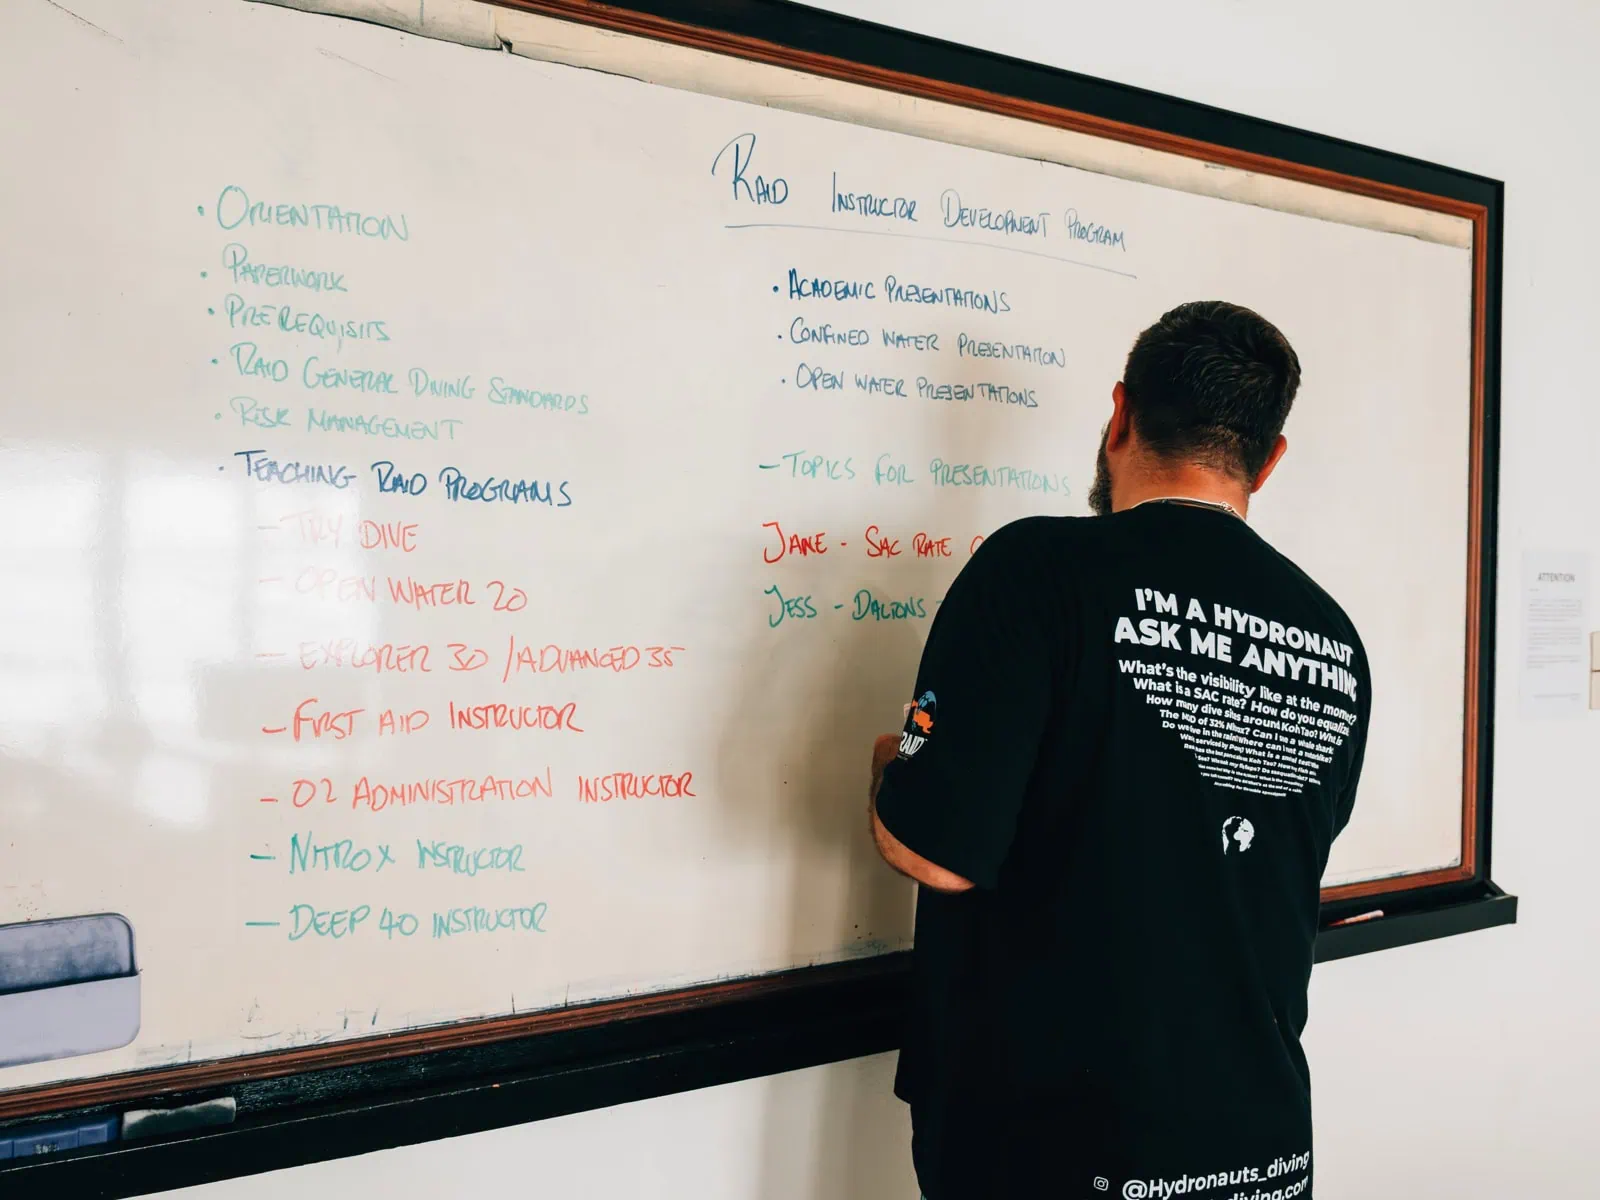 RAID INSTRUCTOR DEVELOPMENT PROGRAM
• ORIENTATION
• PAPERWORK
• PREREQUISITS
• RAID GENERAL DIVING STANDARDS
• RISK MANAGEMENT
• TEACHING RAID PROGRAMS
- TRY DIVE
- OPEN WATER 20
- EXPLORER 30 / ADVANCED 35
- FIRST AID INSTRUCTOR
- O2 ADMINISTRATION INSTRUCTOR
- NITROX INSTRUCTOR
- DEEP 40 INSTRUCTOR
• ACADEMIC PRESENTATIONS
• CONFINED WATER PRESENTATION
• OPEN WATER PRESENTATIONS
- TOPICS FOR PRESENTATIONS
JANE - SAC RATE
JESS - DALTONS
I'M A HYDRONAUT
ASK ME ANYTHING
What's the visibility like at the moment?
What is a SAC rate? How do you equalize
How many dive sites around Koh Tao? What is
The MOD of 32% Nitrox? Can I see a whale shark
RAID
ATTENTION
@Hydronauts_diving
diving.com